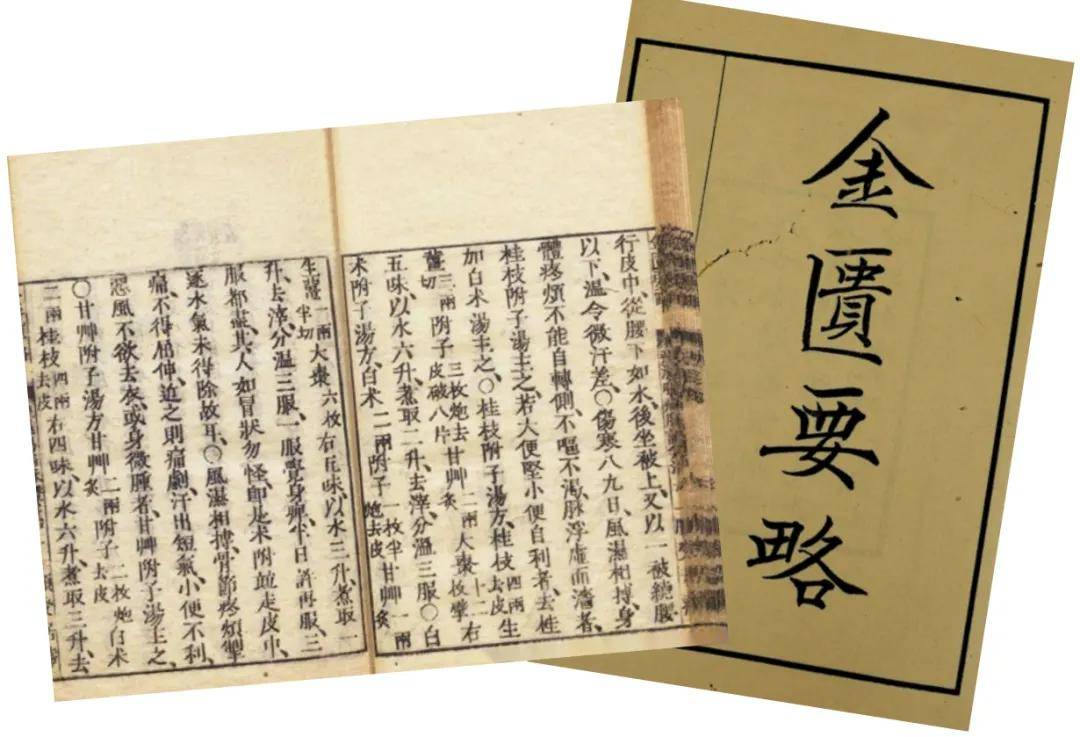 金匱要略
行皮中、從腰下如水、後坐被上、又以一被繞腰
以下、溫令微汗差、○傷寒八九日、風濕相搏、身
體疼煩、不能自轉側、不嘔不渴、脉浮虛而濇者、
桂枝附子湯主之、若大便堅、小便自利者、去桂
加白朮湯主之、○桂枝附子湯方、桂枝四兩去皮生
薑三兩切附子三枚炮去皮破八片甘艸二兩炙大棗十二枚擘右
五味、以水六升、煮取二升、去滓、分溫三服、○白
朮附子湯方、白朮二兩附子一枚半炮去皮甘艸一兩炙
生薑一兩半切大棗六枚右五味以水三升、煮取一
升、去滓、分溫三服、一服覺身痺、半日許再服、三
服都盡、其人如冒狀勿怪、卽是朮附竝走皮中、
逐水氣未得除故耳、○風濕相搏、骨節疼煩、掣
痛、不得屈伸、近之則痛劇、汗出短氣、小便不利、
惡風不欲去衣、或身微腫者、甘艸附子湯主之、
○甘艸附子湯方甘艸二兩炙附子二枚炮去皮白朮
二兩桂枝四兩去皮右四味、以水六升、煮取三升、去、